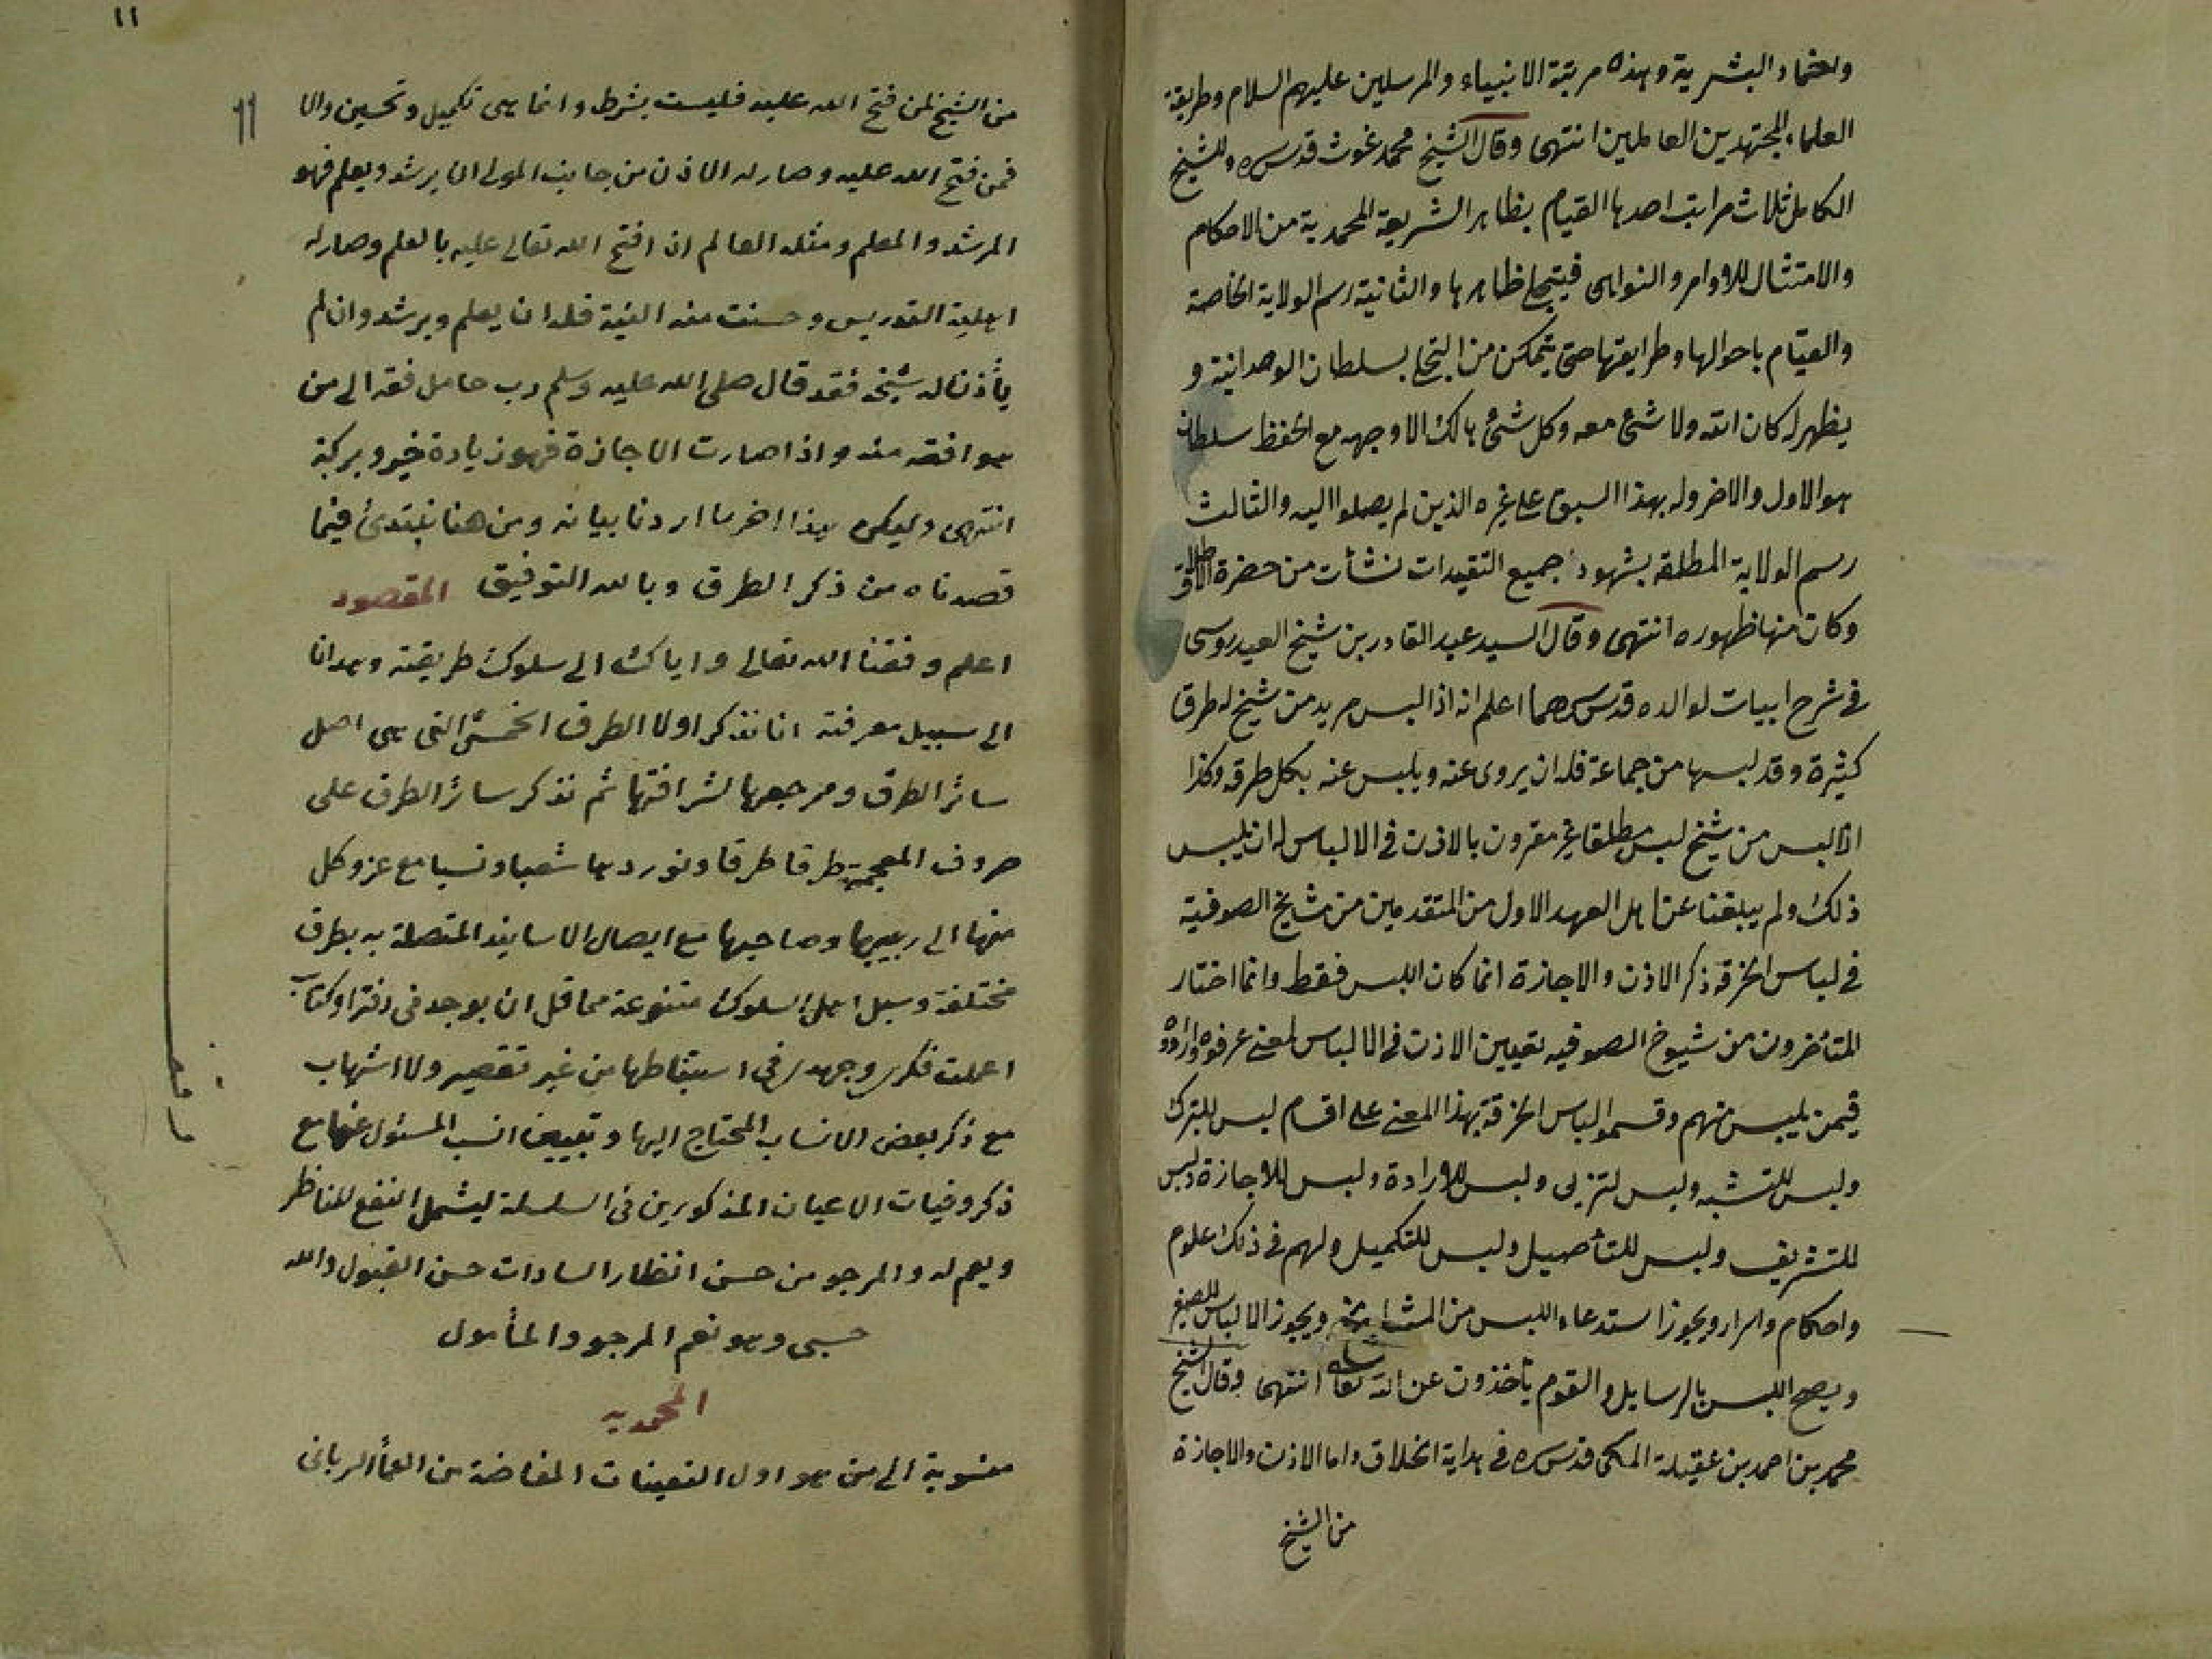 واختماد البشرية وهذه مرتبة الانبياء والمرسلين عليهم السلام وطريقة
العلماء المجتهدين العاملين انتهى وقال الشيخ محمد غوث قدس سره وللشيخ
الكامل ثلاث مراتب احدها القيام بظاهر الشريعة المحمدية من الاحكام
والامتثال للاوامر والنواهى فيتجلى ظاهرها والثانية رسم الولاية الخاصة
والقيام باحوالها وطرايقها حتى يتمكن من التجلى بسلطان الوحدانية و
يظهر له كان الله ولا شئ معه وكل شئ هالك الا وجهه مع الحفظ سلطان
هو الاول والاخر وله بهذا السبق على غيره الذين لم يصلوا اليه والثالث
رسم الولاية المطلقه بشهود جميع التقيدات نشأت من حضرة الاطلاق
وكان منها ظهوره انتهى وقال السيد عبد القادر بن شيخ العيدروسى
فى شرح ابيات لوالده قدس سرهما اعلم انه اذا لبس مريد من شيخ له طرق
كثيرة وقد لبسها من جماعة فله ان يروى عنه ويلبس عنه بكل طرقه وكذا
اذا لبس من شيخ لبس مطلقا غير مقرون بالاذن فى الالباس له ان يلبس
ذلك ولم يبلغنا عن اهل العهد الاول من المتقدمين من مشايخ الصوفية
فى لباس الخرقة ذكر الاذن والاجازة انما كان اللبس فقط وانما اختار
المتأخرون من شيوخ الصوفيه تعيين الاذن فى الالباس لمعنى عرفوه وارادوه
فيمن يلبس منهم وقسموا لباس الخرقة بهذا المعنى على اقسام لبس للتبرك
ولبس للتشبه ولبس لتزيى ولبس للارادة ولبس للاجازة ولبس
للتشريف ولبس للتأصيل ولبس للتكميل ولهم فى ذلك علوم
واحكام واسرار ويجوز استدعاء اللبس من المشايخ ويجوز الالباس للصغير
ويصح اللبس بالرسايل والقوم يأخذون عن الله تعالى انتهى وقال الشيخ
محمد بن احمد بن عقيلة المكى قدس سره فى هداية الخلاق واما الاذن والاجازة
من الشيخ
١١
١١
من الشيخ لمن فتح الله عليه فليست بشرط وانما هى تكميل وتحسين والا
فمن فتح الله عليه وصار له الاذن من جانب المولى ان يرشد ويعلم فهو
المرشد والمعلم ومثله العالم ان افتح الله تعالى عليه بالعلم وصار له
اهلية التدريس وحسنت منه النية فله ان يعلم ويرشد وان لم
يأذن له شيخه فقد قال صلى الله عليه وسلم رب حامل فقه الى من
هو افقه منه واذا صارت الاجازة فهو زيادة خير وبركة
انتهى وليكن هذا اخر ما اردنا بيانه ومن هنا نبتدئ فيما
قصدناه من ذكر الطرق وبالله التوفيق المقصود
اعلم وفقنا الله تعالى واياك الى سلوك طريقته وهدانا
الى سبيل معرفته انا نذكر اولا الطرق الخمس التى هى اصل
سائر الطرق ومرجعها لشرافتها ثم نذكر سائر الطرق على
حروف المعجمة طرقا طرقا ونورد بها شعبا ونسبا مع عزو كل
منها الى ربيبها وصاحبها مع ايصال الاسانيد المتصلة به بطرق
مختلفة وسبل اهل السلوك متنوعة مما قل ان يوجد فى دفتر او كتاب
اعملت فكرى وجهدى فى استنباطها من غير تقصير ولا اشهاب
مع ذكر بعض الانساب المحتاج اليها وتبيين انسب المسئول عنها مع
ذكر وفيات الاعيان المذكورين فى السلسلة ليشمل النفع للناظر
ويعم له والمرجو من حسن انظار السادات حسن القبول والله
حسبى وهو نعم المرجو والمأمول
المحمديه
منسوبة الى من هو اول التعينات المفاضة من العمأ الربانى